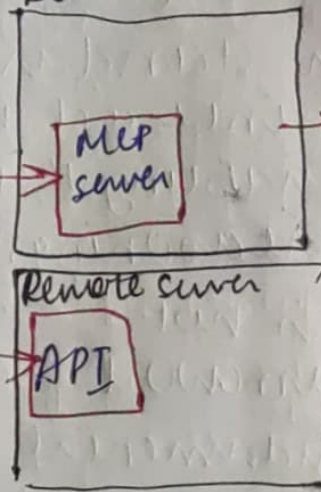 MCP
server
Remote server
API